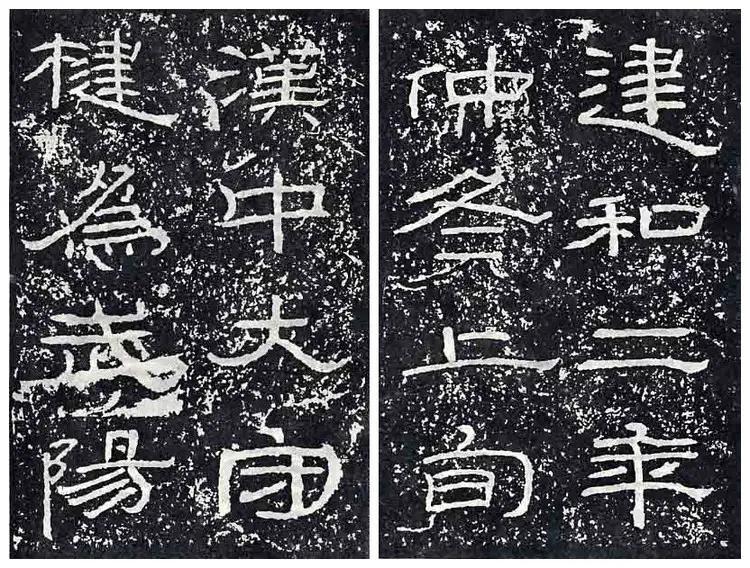 建和二年
仲冬上旬
漢中大守
楗為武陽